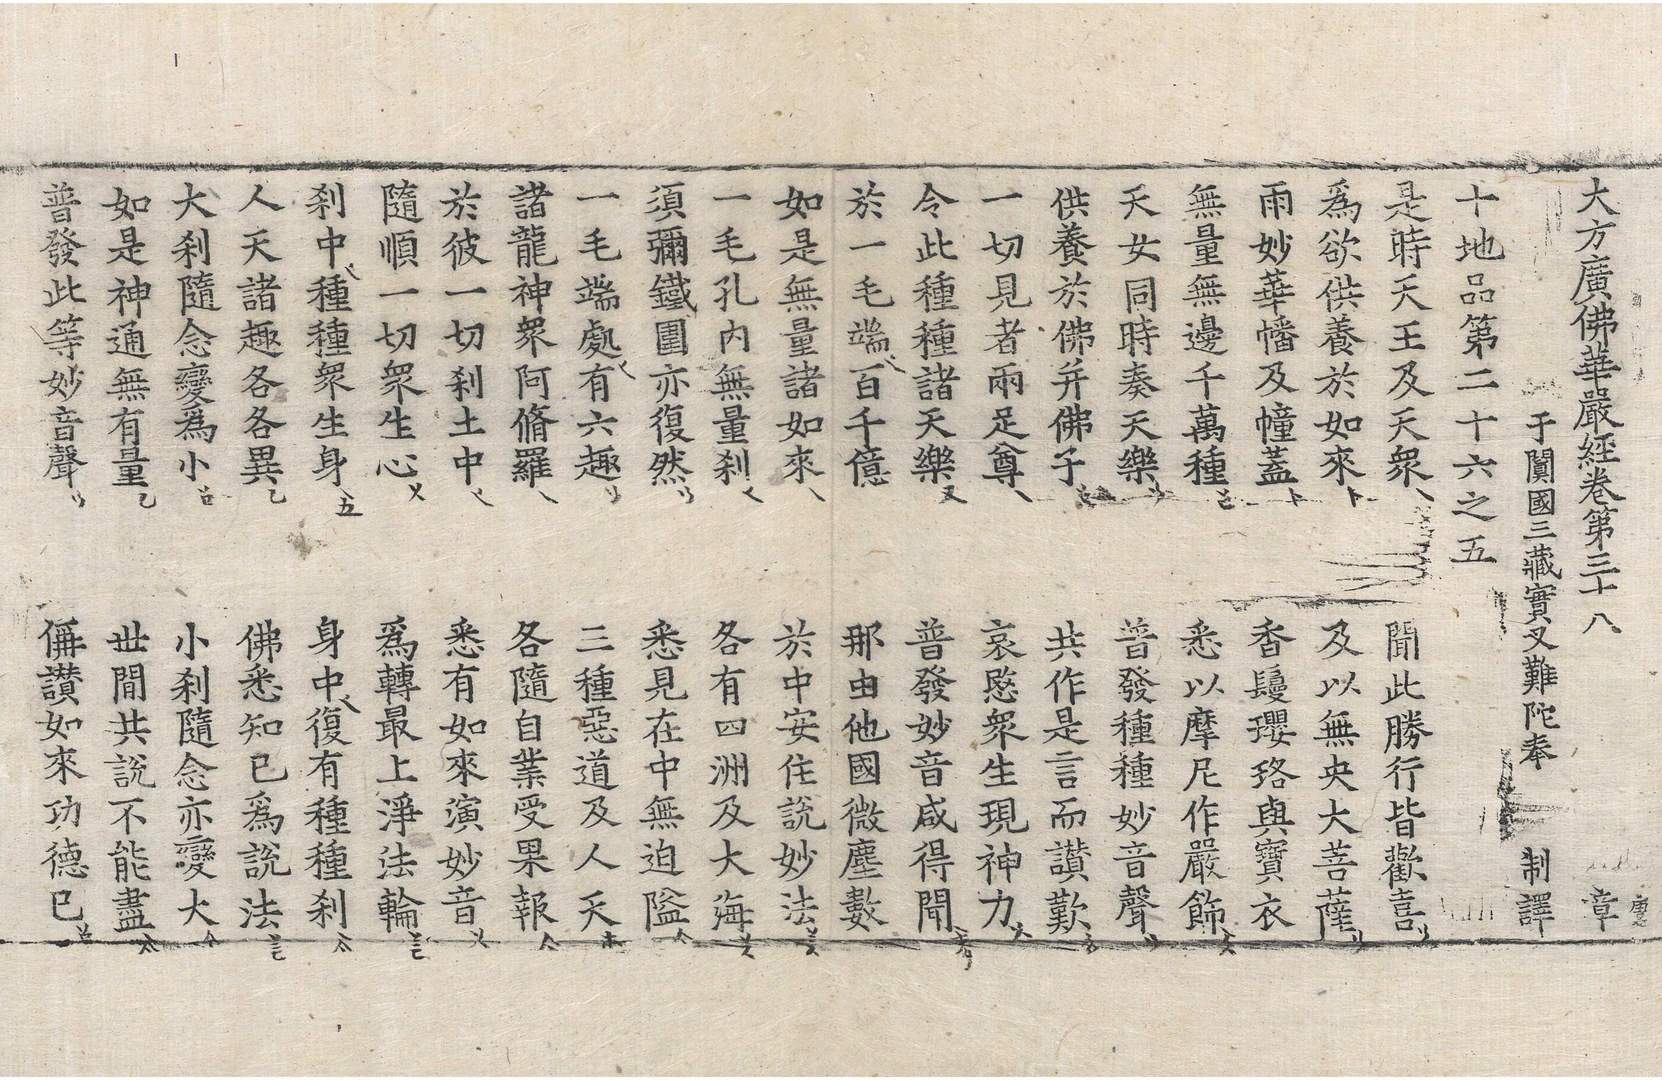 大方廣佛華嚴經卷第三十八 章
于闐國三藏實叉難陀奉 制譯
十地品第二十六之五
是時天王及天眾 聞此勝行皆歡喜
為欲供養於如來 及以無央大菩薩
雨妙華幡及幢蓋 香鬘瓔珞與寶衣
無量無邊千萬種 悉以摩尼作嚴飾
天女同時奏天樂 普發種種妙音聲
供養於佛并佛子 共作是言而讚歎
一切見者兩足尊 哀愍眾生現神力
令此種種諸天樂 普發妙音咸得聞
於一毛端百千億 那由他國微塵數
如是無量諸如來 於中安住說妙法
一毛孔內無量刹 各有四洲及大海
須彌鐵圍亦復然 悉見在中無迫隘
一毛端處有六趣 三種惡道及人天
諸龍神眾阿脩羅 各隨自業受果報
於彼一切刹土中 悉有如來演妙音
隨順一切眾生心 為轉最上淨法輪
刹中種種眾生身 身中復有種種刹
人天諸趣各各異 佛悉知已為說法
大刹隨念變為小 小刹隨念亦變大
如是神通無有量 世間共說不能盡
普發此等妙音聲 偁讚如來功德已